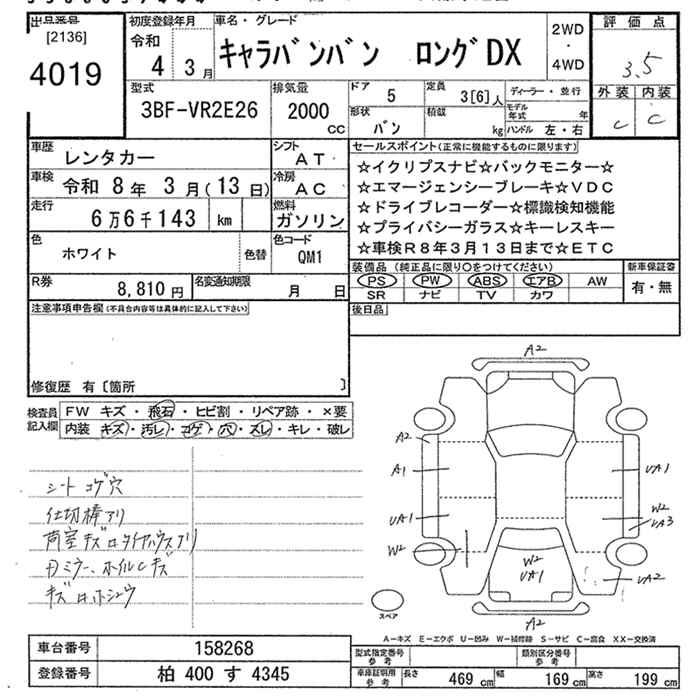 出品番号
[2136]
4019
初度登録年月
令和
4 3月
車名・グレード
キャラバンバン ロングDX
2WD
・
4WD
評価点
3.5
外装 内装
C C
型式
3BF-VR2E26
排気量
2000
CC
ドア
5
定員
3[6]人
形状
バン
積載
kg
ディーラー・並行
モデル年式 年
ハンドル 左・右
車歴
レンタカー
シフト
AT
車検
令和 8年 3月(13日)
冷房
AC
走行
6万6千143 km
燃料
ガソリン
色
ホワイト
色替
色コード
QM1
R券
8,810円
名変通知期限
月 日
セールスポイント(正常に機能するものに限ります)
☆イクリプスナビ☆バックモニター☆
☆エマージェンシーブレーキ☆VDC
☆ドライブレコーダー☆標識検知機能
☆プライバシーガラス☆キーレスキー
☆車検R8年3月13日まで☆ETC
装備品(純正品に限り○をつけてください)
PS PW ABS エアB AW
SR ナビ TV カワ
新車保証書
有・無
注意事項申告欄(不具合内容等は具体的に記入して下さい)
修復歴 有〔箇所 〕
後日品
検査員記入欄
FW キズ・飛石・ヒビ割・リペア跡・×要
内装 キズ・汚レ・コゲ・穴・スレ・キレ・破レ
シートコゲ穴
仕切棒アリ
荷室キズ
キズ
A2
A2
A1
UA1
W2
UA1
W2
UA3
W2
UA1
UA2
A2
スペア
A-キズ E-エクボ U-凹み W-補修跡 S-サビ C-腐食 XX-交換済
車台番号
158268
登録番号
柏 400 す 4345
型式指定番号
参考
類別区分番号
参考
車庫証明用
参考
長さ 469cm
幅 169cm
高さ 199cm